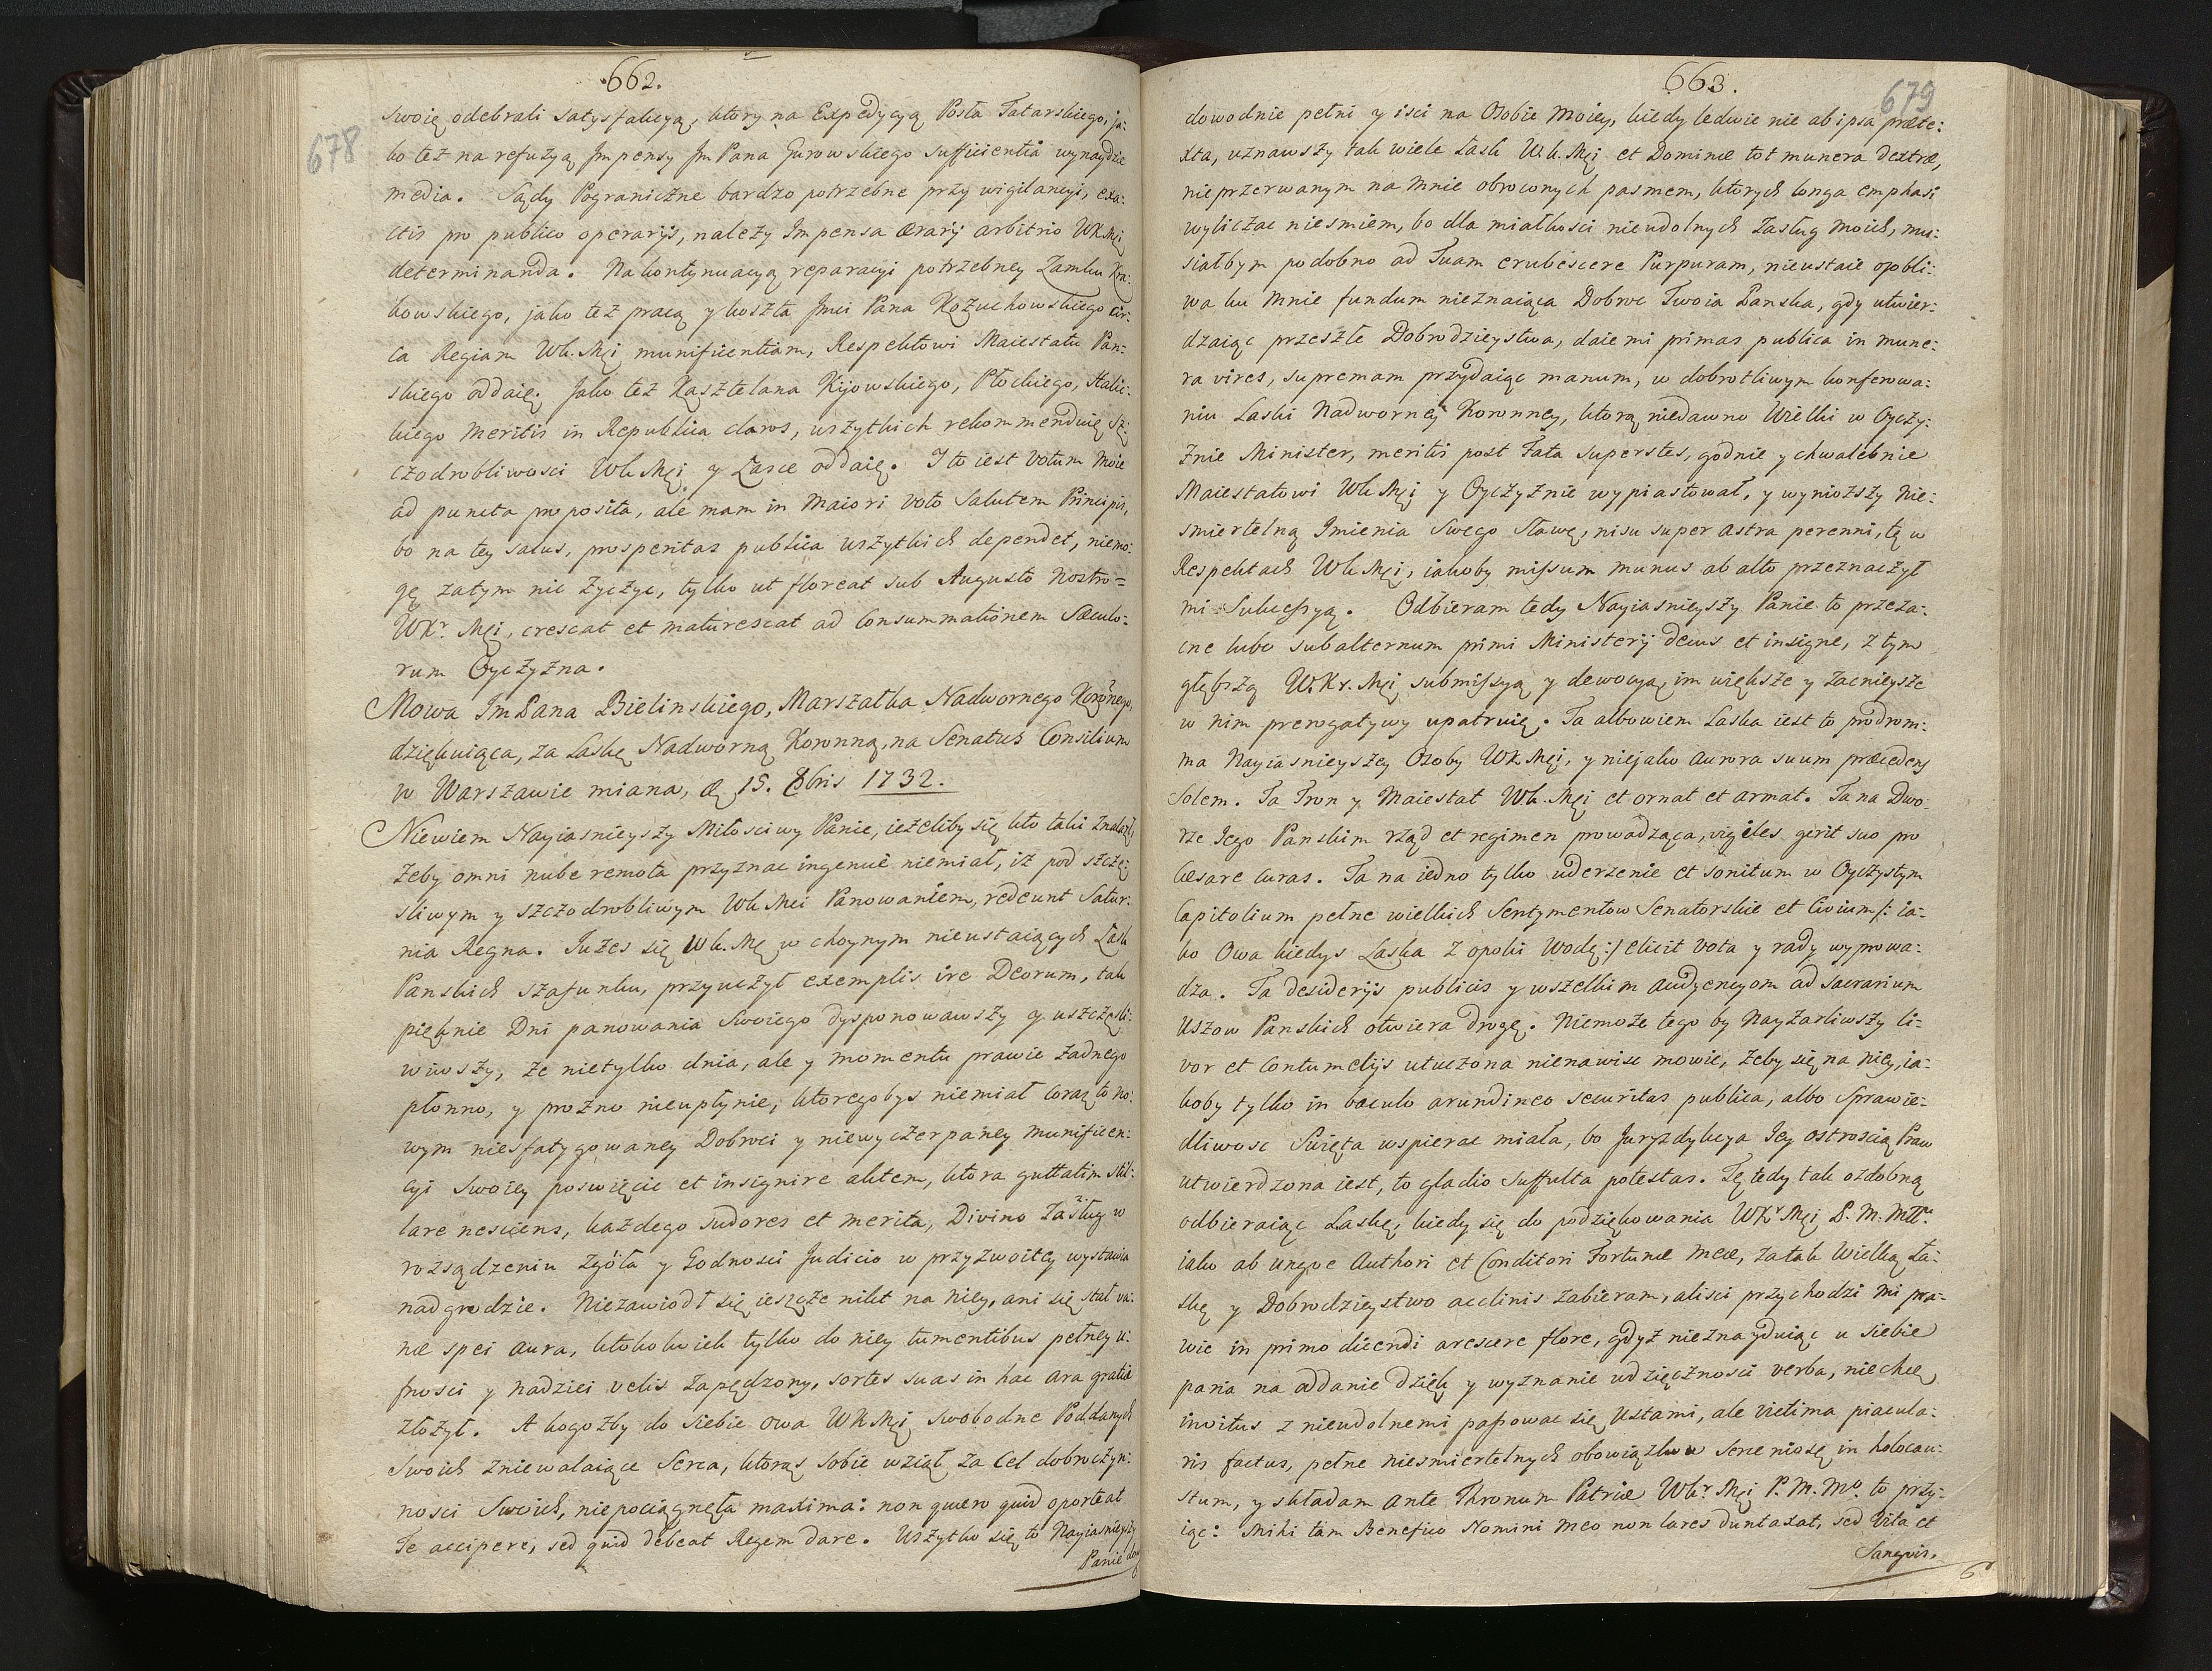 662.
678
swoię odebrali satysfakcyą, ktory na Expedycyą Posła Tatarskiego, ja:
ko też na refuzyą Impensy Jm Pana Gurowskiego sufficientia wynaydzie
media. Sądy Pograniczne bardzo potrzebne przy wigilancyi, exa:
ctis pro publico operarijs, należy Impensa ærarij arbitrio WKMci
determinanda. Na kontynuacyą reparacyi potrzebney Zamku Kra:
kowskiego, jako też pracą y koszta Jmci Pana Kozuchowskiego cir:
ca Regiam Wk. Mci munificentiam, Respektowi Maiestatu Pań:
skiego oddaię. Jako też Kasztelana Kijowskiego, Płockiego, Halic:
kiego meritis in Republica claros, wszytkich rekommenduię sz:
czodrobliwosci Wk Mci y Łasce oddaię. I to iest votum moie
ad puncta proposita, ale mam in maiori voto Salutem Principis,
bo na tey salus, prosperitas publica wszytkich dependet, niemo:
gę zatym nic zyczyc, tylko ut floreat sub Augusto Nostro=
WKr. Mci, crescat et maturescat ad Consummationem Sæculo:
rum Oyczyzna.
Mowa Jm Pana Bielinskiego, Marszałka Nadwornego Koronnego,
dziękuiąca, za Laskę Nadworną Koronną, na Senatus Consilium
w Warszawie miana, d. 15. 8bris 1732.
Niewiem Nayiasnieyszy Miłosciwy Panie, ieżeliby się kto taki znalazł,
żeby omni nube remota przyznac ingenue niemiał, iż pod szczę:
sliwym y szczodrobliwym Wk Mci Panowaniem, redeunt Satur:
nia Regna. Jużes się Wk. Mc w choynym nieustaiących Łask
Panskich szafunku, przyuczył exemplis ire Deorum, tak
pięknie Dni panowania Swoiego dysponowawszy y uszczęsli:
wiwszy, że nietylko dnia, ale y momentu prawie żadnego
płonno, y prozno nieupłynie, ktoregobys niemiał coraz to no:
wym niesfatygowaney Dobroci y niewyczerpaney munificen:
cyi swoiey poswięcic et insignire aktem, ktora guttatim stil:
lare nesciens, każdego sudores et merita, Divino Zasług w
rozsądzeniu Zgóła y Godnosci Judicio w przyzwoitey wystawia
nadgrodzie. Niezawiodł się ieszcze nikt na niey, ani się stał va:
næ spei aura, ktokolwiek tylko do niey tumentibus pełney u:
fnosci y nadziei velis zapędzony, sortes suas in hac ara gratiæ
złożył. A kogożby do siebie owa WKMci swobodne Poddanych
Swoich zniewalaiące Serca, ktorąs sobie wziął za Cel dobroczyn:
nosci Swoich, niepociągnęła maxima: non quæro quid oporteat
Te accipere, sed quid debeat Regem dare. Wszytko się to Nayiasnieyszy
Panie do
663.
679
dowodnie pełni y isci na Osobie moiey, kiedy ledwie nie ab ipsa præte:
xta, uznawszy tak wiele Łask Wk. Mci et Dominæ tot munera dextræ,
nieprzerwanym na mnie obroconych pasmem, ktorych longa emphasi
wyliczac niesmiem, bo dla miałkości nieudolnych Zasług moich, mu:
siałbym podobno ad Tuam erubescere Purpuram, nieustaie opobli:
wa ku mnie fundum nieznaiąca Dobroc Twoia Panska, gdy utwier:
dzaiąc przeszłe Dobrodzieystwa, daie mi primas publica in mune:
ra vires, supremam przydaiąc manum, w dobrotliwym konferowa:
niu Laski Nadworney Koronney, ktorą niedawno Wielki w Oyczy:
znie Minister, meritis post Fata superstes, godnie y chwalebnie
Maiestatowi Wk Mci y Oyczyznie wypiastował, y wyniozszy nie:
smiertelną Imienia Swego Sławę, nisu super astra perenni, tę w
Respektach Wk Mci, iakoby missum munus ab alto przeznaczył
mi Sukcessyą. Odbieram tedy Nayiasnieyszy Panie to przeza:
cne lubo subalternum primi Ministerij decus et insigne, z tym
głębszą W.Kr. Mci submissyą y dewocyą, im większe y zacnieysze
w nim prerogatywy upatruię. Ta albowiem Laska iest to prodrom:
ma Nayiasnieyszey Osoby Wk Mci, y niejako aurora suum præcedens
Solem. Ta Tron y Maiestat Wk. Mci et ornat et armat. Ta na Dwo:
rze Jego Panskim rząd et regimen prowadząca, vigiles gerit suo pro
Cæsare curas. Ta na iedno tylko uderzenie et sonitum w Oyczystym
Capitolium pełne wielkich Sentymentow Senatorskie et Civium /: ia:
ko Owa kiedys Laska z opoki wodę :/ elicit vota y rady wyprowa:
dza. Ta desiderijs publicis y wszelkim audyencyom ad sacrarium
uszow Panskich otwiera drogę. Niemoże tego by Nayzarliwszy li:
vor et contumelijs utuczona nienawisc mowic, żeby się na niey, ia:
koby tylko in baculo arundineo securitas publica, albo Sprawie:
dliwosc Święta wspierac miała, bo Juryzdykcya Jey ostroscią Praw
utwierdzona iest, to gladio suffulta potestas. Tę tedy tak ozdobną
odbieraiąc Laskę, kiedy się do podziękowania WKr Mci P. M. Mu
iako ab ungve Authori et Conditori Fortunæ meæ, za tak wielką Ła:
skę y Dobrodzieystwo acclinis zabieram, alisci przychodzi mi pra:
wie in primo dicendi arescere flore, gdyż nieznayduiąc u siebie
paria na oddanie dzięk y wyznanie wdzięcznosci verba, niechcę
invitus z nieudolnemi passowac się ustami, ale victima piacula:
ris factus, pełne niesmiertelnych obowiązkow Serce niosę in holocau:
stum, y składam ante Thronum Patriæ Wkr. Mci P. M. Mo. to przy:
iąc: Mihi tam Benefico Nomini meo non lares duntaxat, sed vita et
Sangvis.